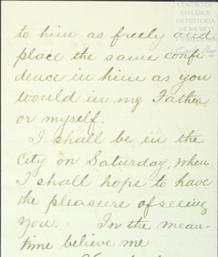 CENTRO DE
ESTUDIOS
DE HISTORIA
DE MEXICO
to him as freely and
place the same confi
dence in him as you
would in my Father
or myself.
I shall be in the
City on Saturday, when
I shall hope to have
the pleasure of seeing
you. In the mean-
time believe me